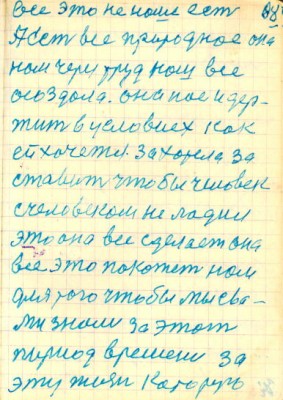 все это не наши ест
А ест все природное она
нам черы труд наш все
создола. она нас и дер-
жит в условиех как
ей хочется захотела за
ставит чтобы человек
с человеком не ладил
это она все сделает она
все это покажет нам
для того чтобы мы с ва-
ми знали за этот
период времени за
эту жизн которую